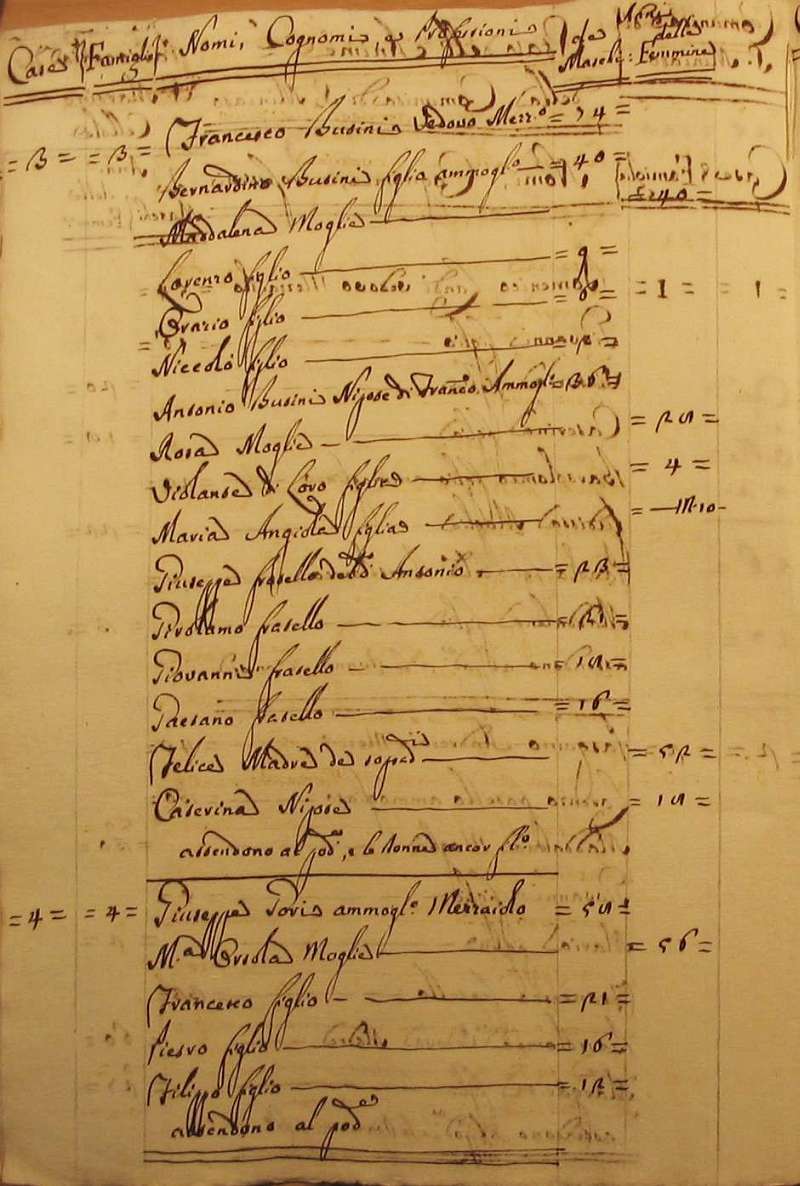 Case Famiglie Nomi, Cognomi, e Professioni età de Maschi delle Femmine
= 3 = = 3 = Francesco Busini Vedovo Mezz.o = 74 =
Bernardino Busini figlio ammoglio = 40 =
Maddalena Moglie = 40 =
Lorenzo figlio = 9 =
Orazio figlio = 1 =
Niccolò figlio
Antonio Busini Nipote di Franco Ammogl.o = 36 =
Rosa Moglie = 25 =
Violante di Loro figlia = 4 =
Maria Angiola figlia = — M. 10 -
Giuseppe fratello del d.o Antonio = 23 =
Girolamo fratello = 21 =
Giovanni fratello = 15 =
Gaetano fratello = 16 =
Felice Madre de sopradi = 52 =
Caterina Nipote = 15 =
attendono al pod.e, e le donne ancor
= 4 = = 4 = Giuseppe Dori ammogl.o Mezzaiolo = 55 =
M.a Orsola Moglie = 56 =
Francesco figlio = 21 =
Pietro figlio = 16 =
Filippo figlio = 12 =
attendono al pod.e